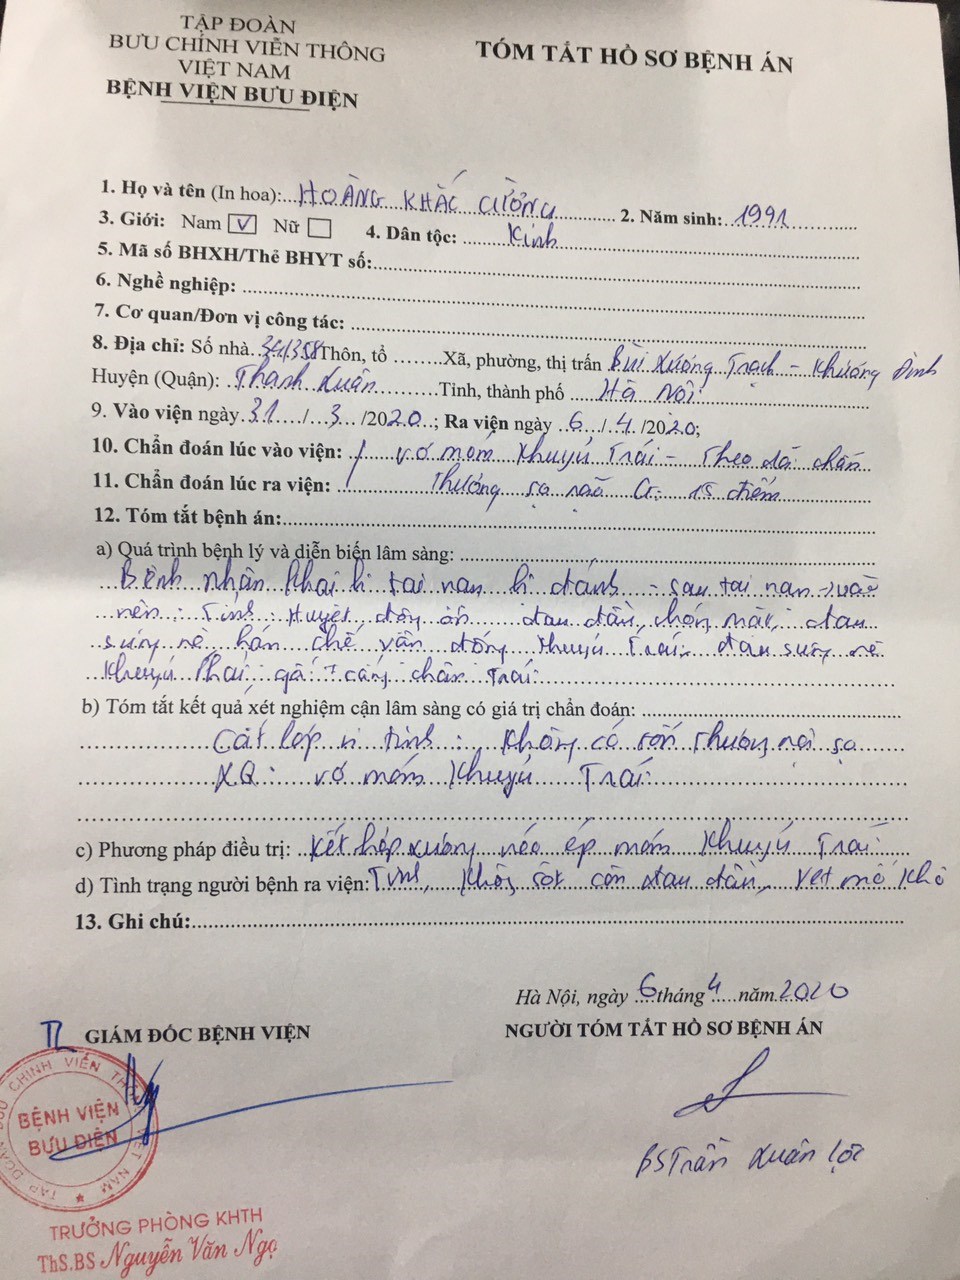 TẬP ĐOÀN
BƯU CHÍNH VIỄN THÔNG
VIỆT NAM
BỆNH VIỆN BƯU ĐIỆN
TÓM TẮT HỒ SƠ BỆNH ÁN
1. Họ và tên (In hoa): HOÀNG KHẮC CƯỜNG 2. Năm sinh: 1991
3. Giới: Nam V Nữ 4. Dân tộc: Kinh
5. Mã số BHXH/Thẻ BHYT số:
6. Nghề nghiệp:
7. Cơ quan/Đơn vị công tác:
8. Địa chỉ: Số nhà Thôn, tổ Xã, phường, thị trấn Bùi Xương Trạch - Khương Đình
Huyện (Quận): Thanh Xuân Tỉnh, thành phố Hà Nội
9. Vào viện ngày 31 / 3 /2020; Ra viện ngày 6 / 4 /2020;
10. Chẩn đoán lúc vào viện: vỡ mỏm khuỷu Trái - Theo dõi chấn
11. Chẩn đoán lúc ra viện: Thương sọ não G: 15 điểm
12. Tóm tắt bệnh án:
a) Quá trình bệnh lý và diễn biến lâm sàng:
Bệnh nhân khai bị tai nạn bị đánh - sau tai nạn -> vào
viện: Tỉnh: Huyết động ổn đau đầu, chóng mặt, đau
sưng nề hạn chế vận động khuỷu Trái, đau sưng nề
khuỷu Phải, cẳng chân Trái
b) Tóm tắt kết quả xét nghiệm cận lâm sàng có giá trị chẩn đoán:
Cắt lớp vi tính: Không có tổn thương nội sọ
XQ: vỡ mỏm khuỷu Trái
c) Phương pháp điều trị: Kết hợp xương néo ép mỏm khuỷu Trái
d) Tình trạng người bệnh ra viện: Tỉnh, không sốt còn đau đầu, vết mổ khô
13. Ghi chú:
Hà Nội, ngày 6 tháng 4 năm 2020
TL GIÁM ĐỐC BỆNH VIỆN
NGƯỜI TÓM TẮT HỒ SƠ BỆNH ÁN
BƯU CHÍNH VIỄN THÔNG VIỆT NAM
TẬP ĐOÀN
BỆNH VIỆN
BƯU ĐIỆN
BS Trần Xuân Lộc
TRƯỞNG PHÒNG KHTH
ThS.BS Nguyễn Văn Ngọ